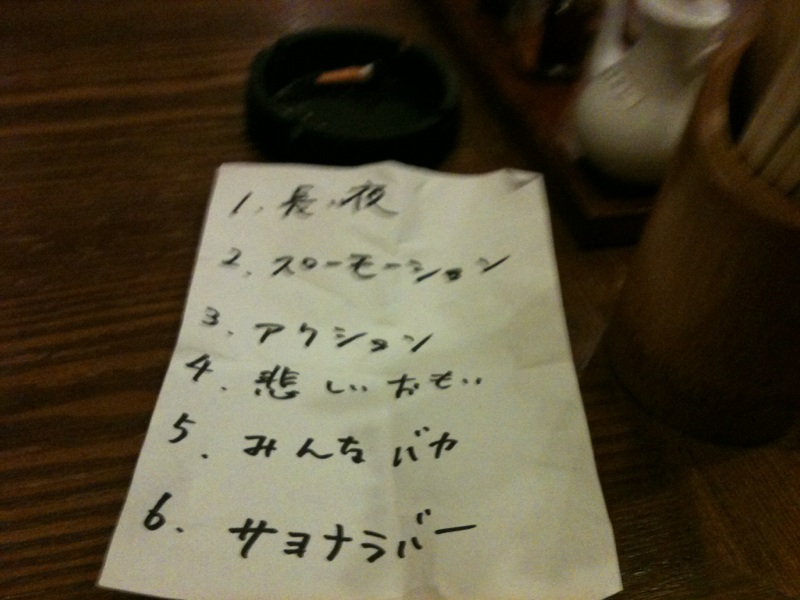 1. 長い夜
2. スローモーション
3. アクション
4. 悲しいおもい
5. みんなバカ
6. サヨナラバー